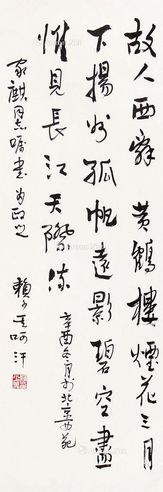 故人西辞黄鹤樓煙花三月
下揚州孤帆遠影碧空盡
惟見長江天際流
辛酉冬月於北京西苑
家麒同志嘱書尚正之
賴少其呵汗